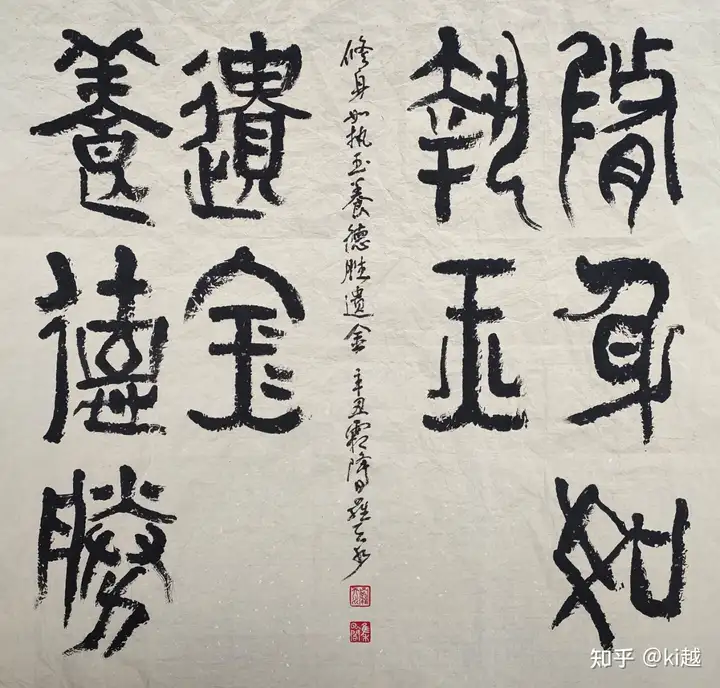 脩身如
執玉
養德勝
遺金
修身如执玉養德胜遺金 辛丑霜降日羅
知乎 @ki越